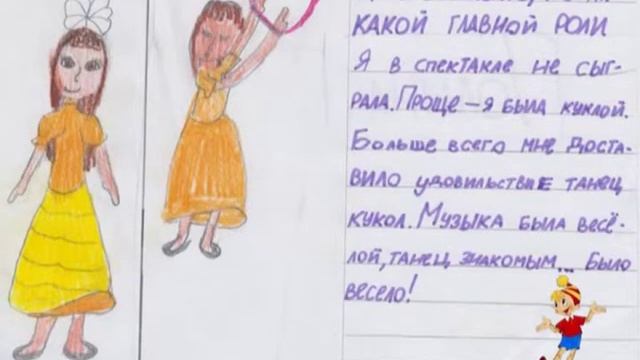 КАКОЙ ГЛАВНОЙ РОЛИ
Я В СПЕКТАКЛЕ НЕ СЫГ-
РАЛА. ПРОЩЕ – Я БЫЛА КУКЛОЙ.
БОЛЬШЕ ВСЕГО МНЕ ДОСТА-
ВИЛО УДОВИЛЬСТВИЕ ТАНЕЦ
КУКОЛ. МУЗЫКА БЫЛА ВЕСЁ-
ЛОЙ, ТАНЕЦ ЗНАКОМЫМ... БЫЛО
ВЕСЕЛО!